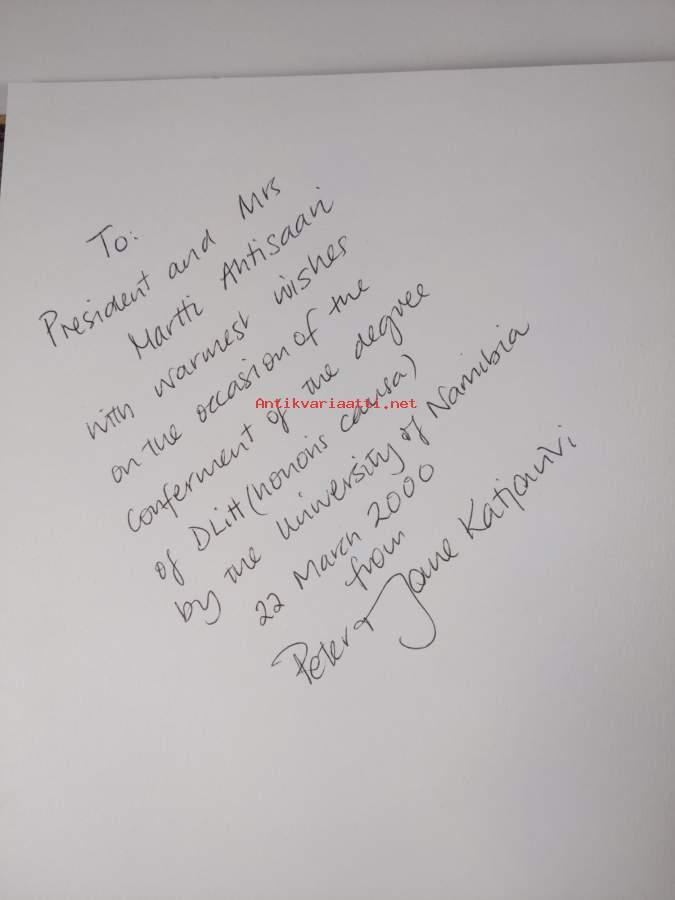 To:
President and Mrs
Martti Ahtisaari
with warmest wishes
on the occasion of the
Antikvariaatti.net
conferment of the degree
of DLitt (honoris causa)
by the University of Namibia
22 March 2000
from
Peter & Jane Katjavivi